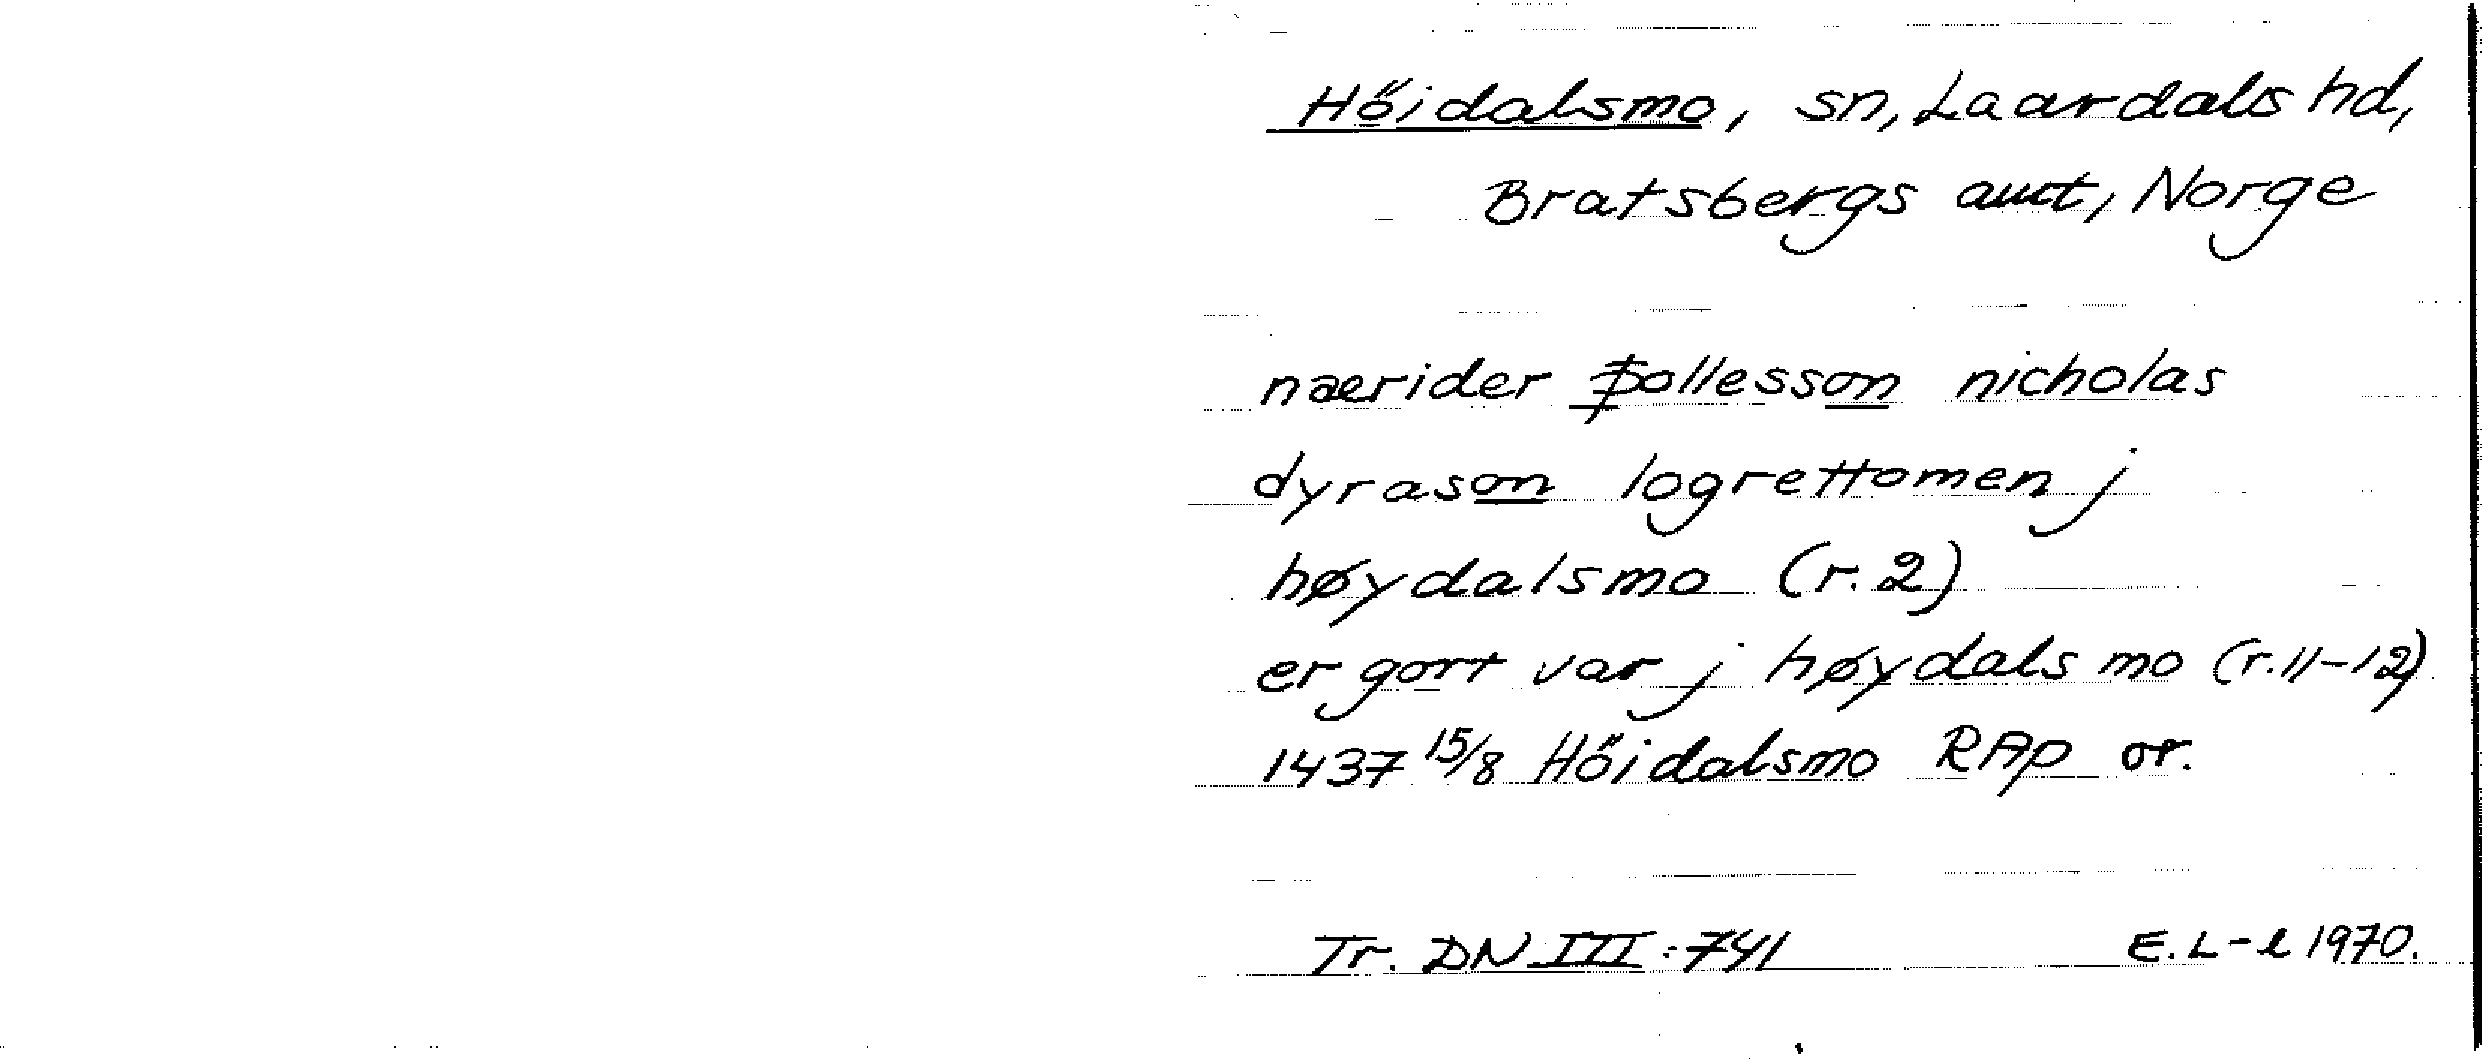 Hői dalsmo, sn, Laardals hd,
Bratsbergs amt, Norge
nærider ꝥollesson nicholas
dyrason logrettomen j
høydalsmo (r. 2)
er gort var j høydals mo (r. 11-12)
1437 15/8 Hőidalsmo RAp or.
Tr. DN III: 741 E. L-l 1970.